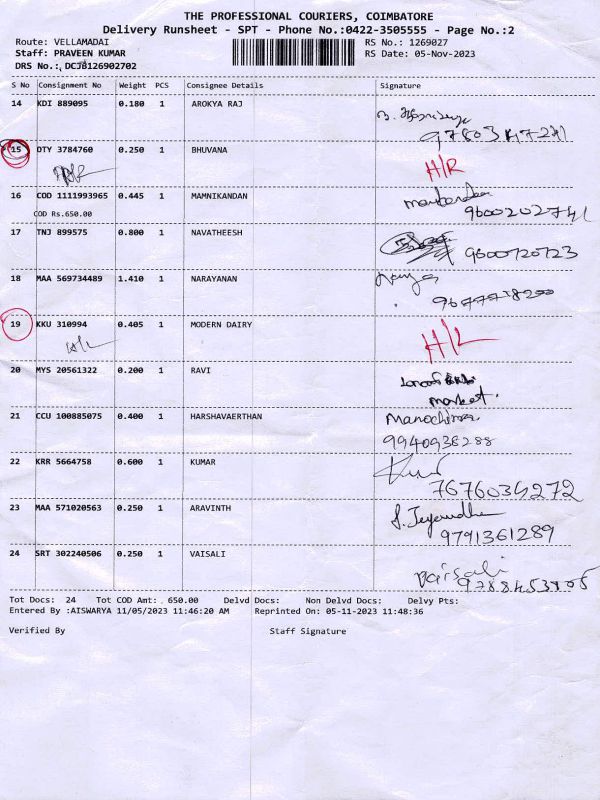 THE PROFESSIONAL COURIERS, COIMBATORE
Delivery Runsheet - SPT - Phone No.:0422-3505555 - Page No.:2
Route: VELLAMADAI RS No.: 1269027
Staff: PRAVEEN KUMAR RS Date: 05-Nov-2023
DRS No.: DCJ8126902702
S No Consignment No Weight PCS Consignee Details Signature
14 KDI 889095 0.180 1 AROKYA RAJ
15 DTY 3784760 0.250 1 BHUVANA H/R
16 COD 1111993965 0.445 1 MAMNIKANDAN
COD Rs.650.00 9600202741
17 TNJ 899575 0.800 1 NAVATHEESH 9600720723
18 MAA 569734489 1.410 1 NARAYANAN
19 KKU 310994 0.405 1 MODERN DAIRY H/L
H/L
20 MYS 20561322 0.200 1 RAVI
market.
21 CCU 100885075 0.400 1 HARSHAVAERTHAN
9940938288
22 KRR 5664758 0.600 1 KUMAR
7676034272
23 MAA 571020563 0.250 1 ARAVINTH
9791361289
24 SRT 302240506 0.250 1 VAISALI Vaisali
Tot Docs: 24 Tot COD Amt: 650.00 Delvd Docs: Non Delvd Docs: Delvy Pts:
Entered By :AISWARYA 11/05/2023 11:46:20 AM Reprinted On: 05-11-2023 11:48:36
Verified By Staff Signature